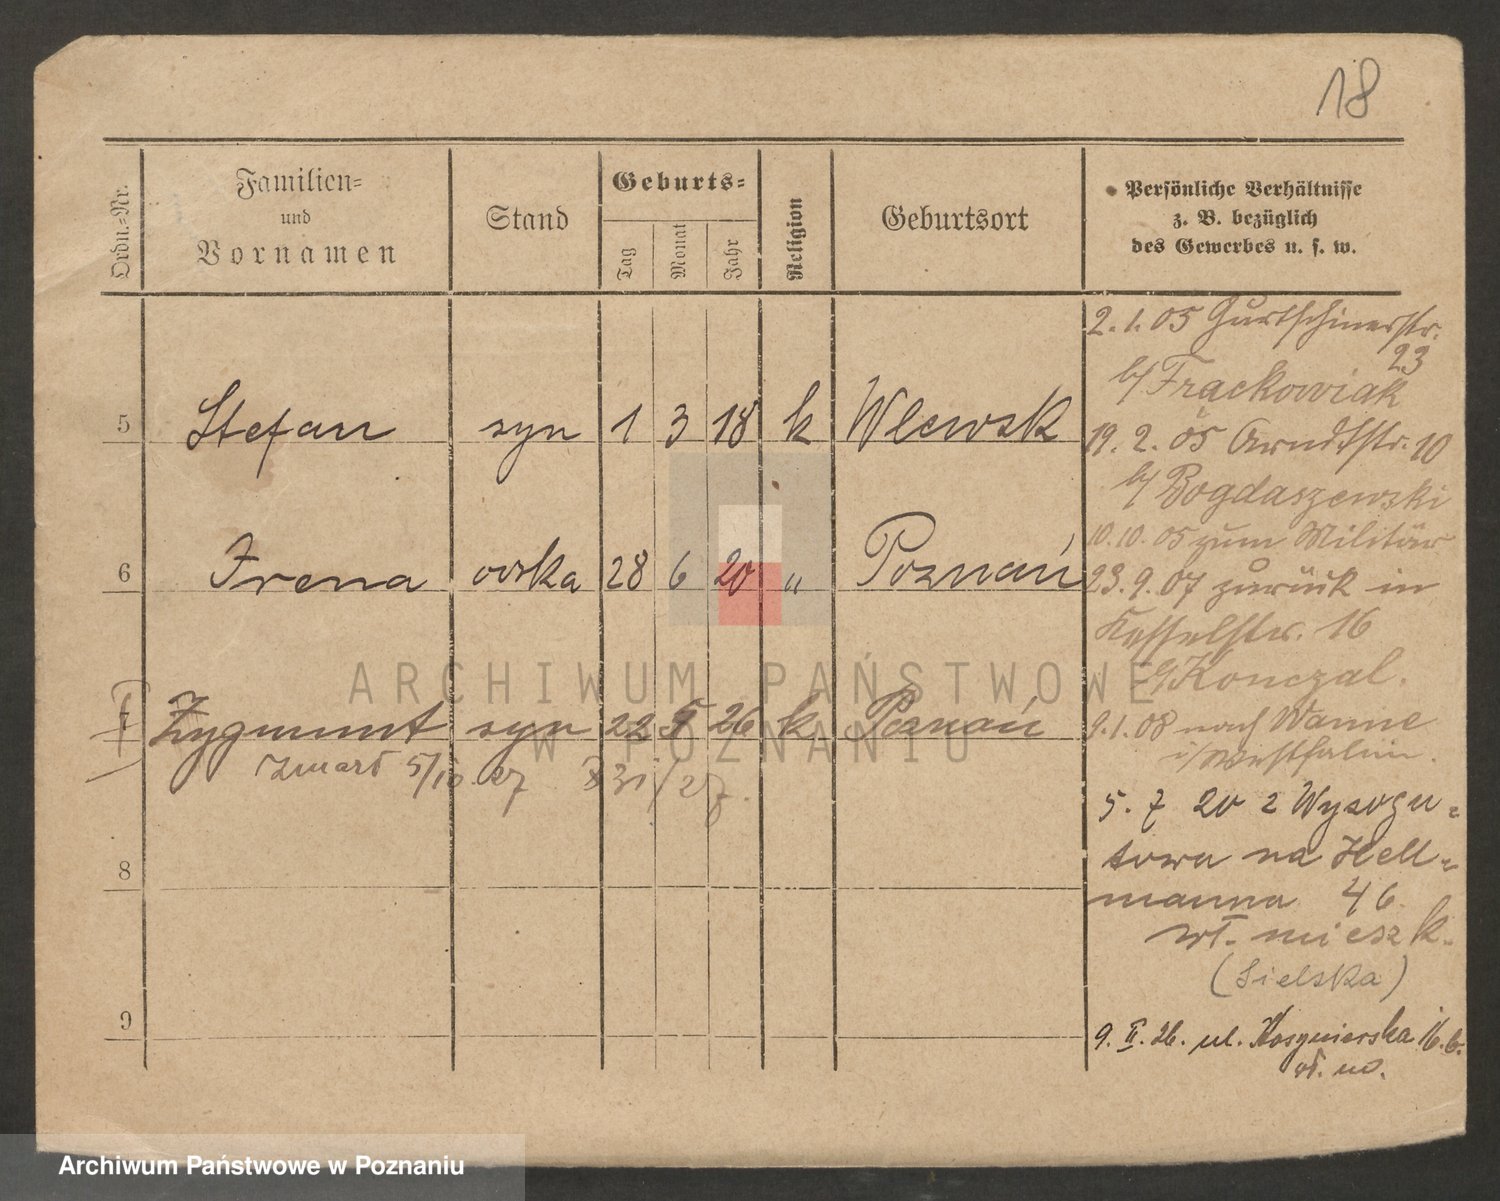 18
Ordn.-Nr.
Familien-
und
Vornamen
Stand
Geburts-
Tag
Monat
Jahr
Religion
Geburtsort
Persönliche Verhältnisse
z. B. bezüglich
des Gewerbes u. s. w.
5 Stefan syn 1 3 18 k Wlewsk
6 Irena córka 28 6 20 " Poznań
7 Zygmunt syn 22 5 26 k Poznań
zmarł 5/10 27 31/27.
8
9
2. 1. 05 Gurtschinerstr.
23
b/ Frackowiak
19. 2. 05 Arndtstr. 10
b/ Bogdaszewski
10. 10. 05 zum Militär
23. 9. 07 zurück in
Kesselstr. 16
b/ Konczal.
9. 1. 08 nach Wanne
i/Westfalen.
5. 7 20 z Wysogo-
towa na Hell-
manna 46
wł. mieszk.
(Sielska)
9. II. 26. ul. 16. 6.
wł. m.
ARCHIWUM PAŃSTWOWE
W POZNANIU
Archiwum Państwowe w Poznaniu